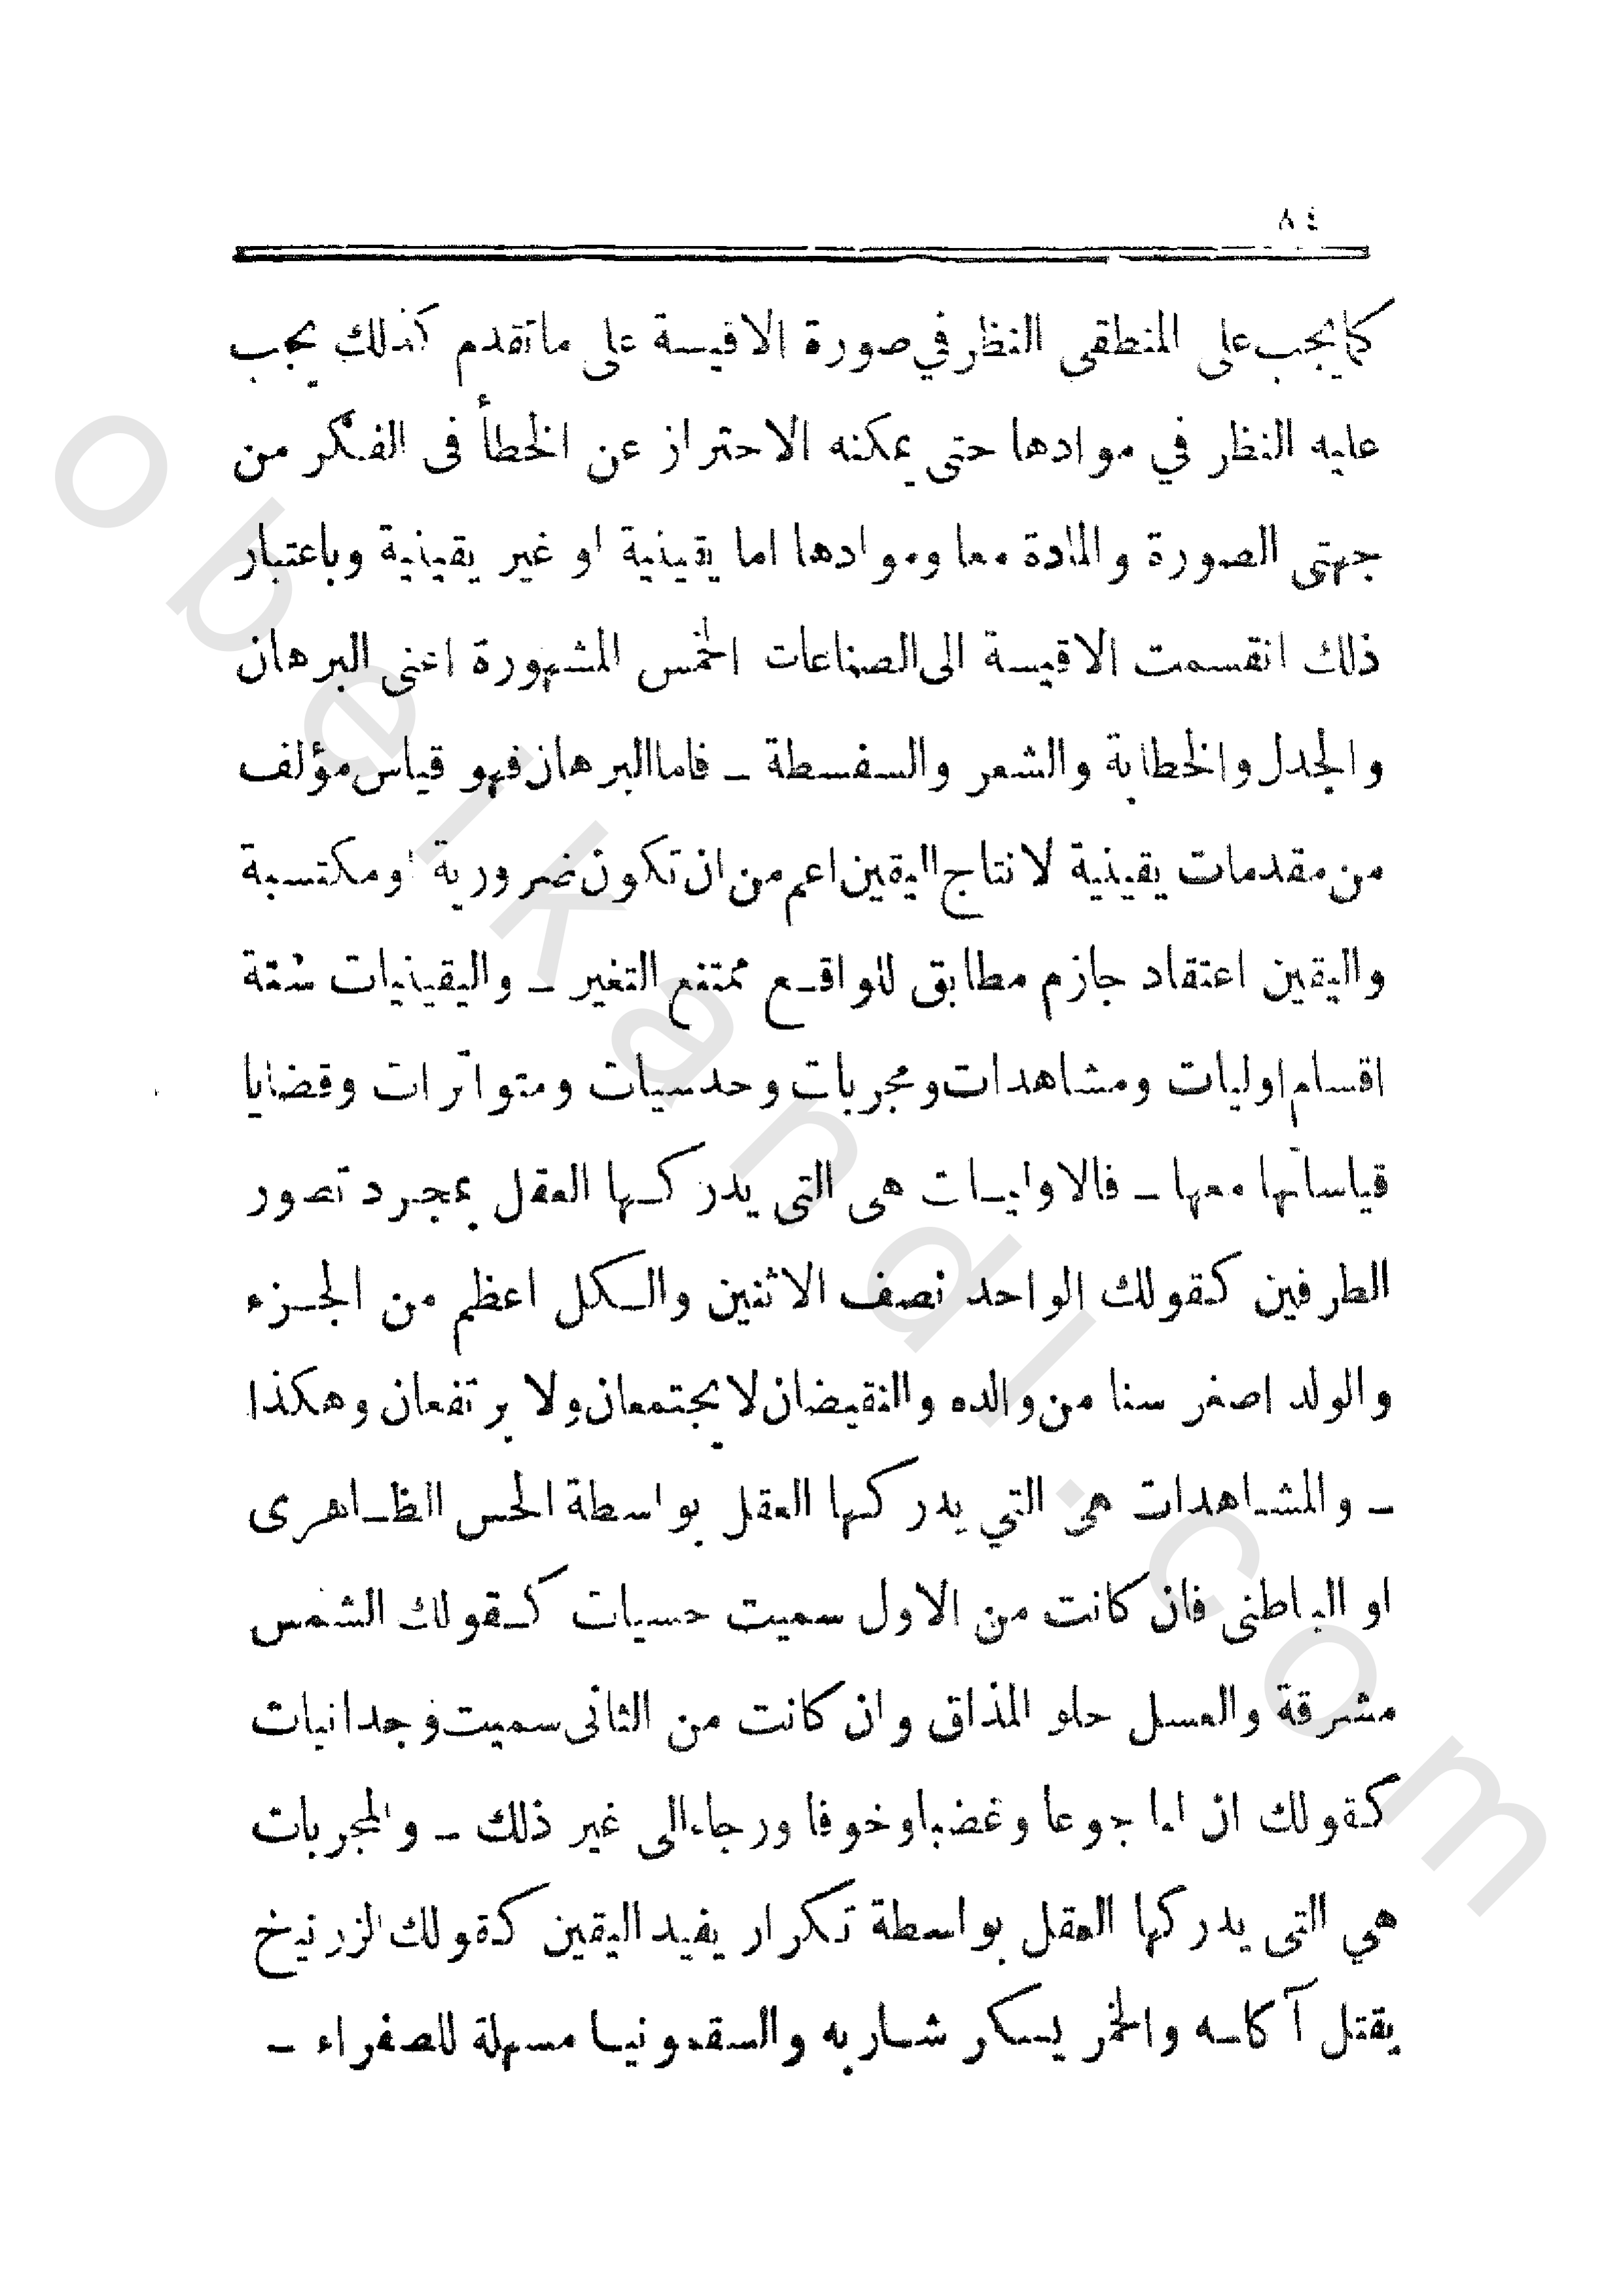 ٨٤
كما يجب على المنطقى النظر في صورة الاقيسة على ماتقدم كذلك يجب
عليه النظر في موادها حتى يمكنه الاحتراز عن الخطأ فى الفكر من
جهتى الصورة والمادة معا وموادها اما يقينية او غير يقينية وباعتبار
ذلك انقسمت الاقيسة الى الصناعات الخمس المشهورة اعنى البرهان
والجدل والخطابة والشعر والسفسطة ـ فاما البرهان فهو قياس مؤلف
من مقدمات يقينية لانتاج اليقين اعم من ان تكون ضرورية او مكتسبة
واليقين اعتقاد جازم مطابق للواقع ممتنع التغير ـ واليقينيات ستة
اقسام اوليات ومشاهدات ومجربات وحدسيات ومتواترات وقضايا
قياساتها معها ـ فالاوليات هى التى يدركها العقل بمجرد تصور
الطرفين كقولك الواحد نصف الاثنين والكل اعظم من الجزء
والولد اصغر سنا من والده والنقيضان لا يجتمعان ولا يرتفعان وهكذا
ـ والمشاهدات هى التي يدركها العقل بواسطة الحس الظاهرى
او الباطنى فان كانت من الاول سميت حسيات كقولك الشمس
مشرقة والعسل حلو المذاق وان كانت من الثانى سميت وجدانيات
كقولك ان لنا جوعا وغضبا وخوفا ورجاء الى غير ذلك ـ والمجربات
هي التى يدركها العقل بواسطة تكرار يفيد اليقين كقولك الزرنيخ
يقتل آكله والخمر يسكر شاربه والسقمونيا مسهلة للصفراء ـ
obeikandl.com